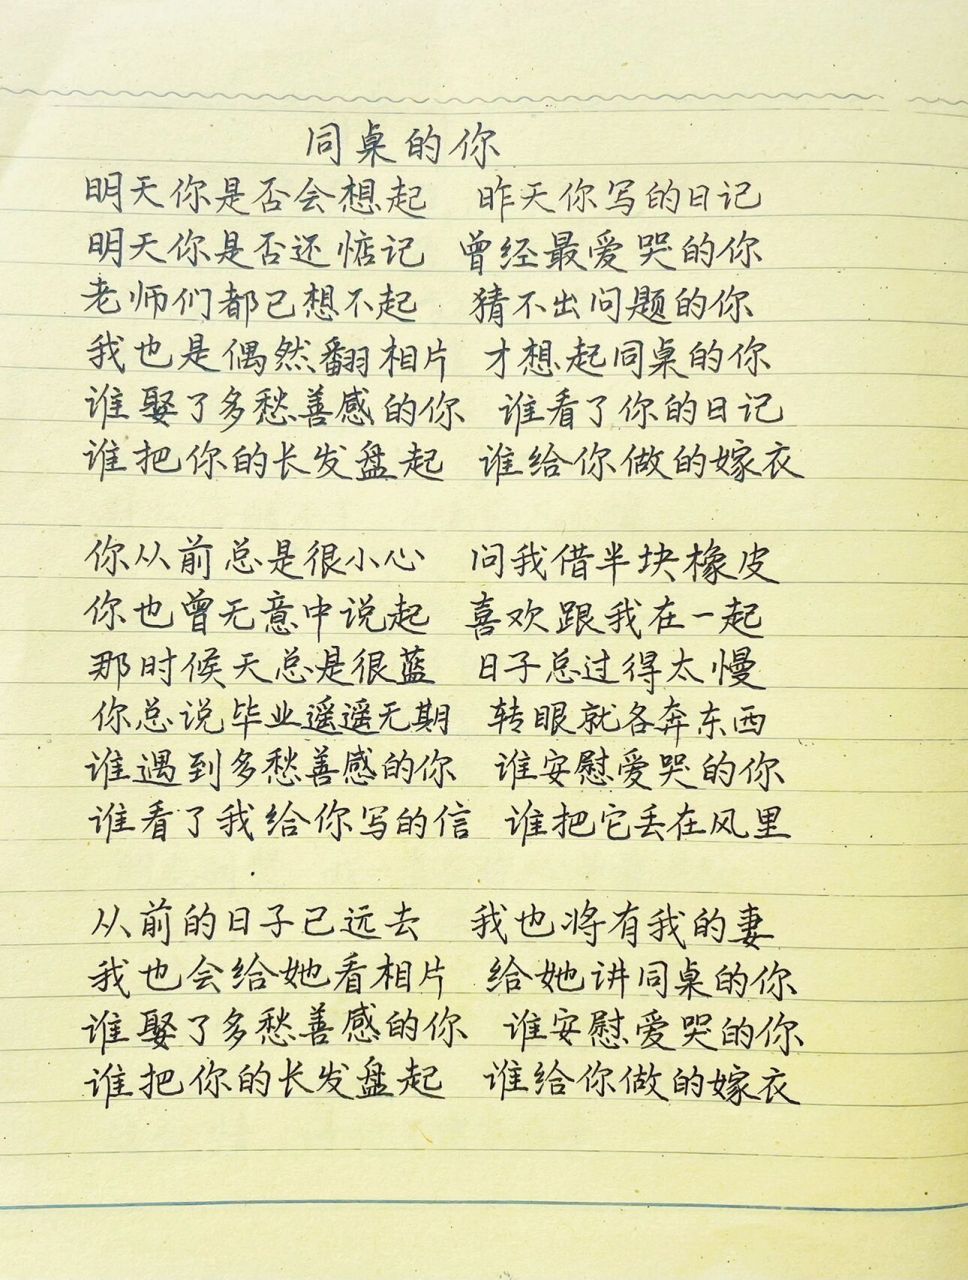 同桌的你
明天你是否会想起 昨天你写的日记
明天你是否还惦记 曾经最爱哭的你
老师们都已想不起 猜不出问题的你
我也是偶然翻相片 才想起同桌的你
谁娶了多愁善感的你 谁看了你的日记
谁把你的长发盘起 谁给你做的嫁衣
你从前总是很小心 问我借半块橡皮
你也曾无意中说起 喜欢跟我在一起
那时候天总是很蓝 日子总过得太慢
你总说毕业遥遥无期 转眼就各奔东西
谁遇到多愁善感的你 谁安慰爱哭的你
谁看了我给你写的信 谁把它丢在风里
从前的日子已远去 我也将有我的妻
我也会给她看相片 给她讲同桌的你
谁娶了多愁善感的你 谁安慰爱哭的你
谁把你的长发盘起 谁给你做的嫁衣